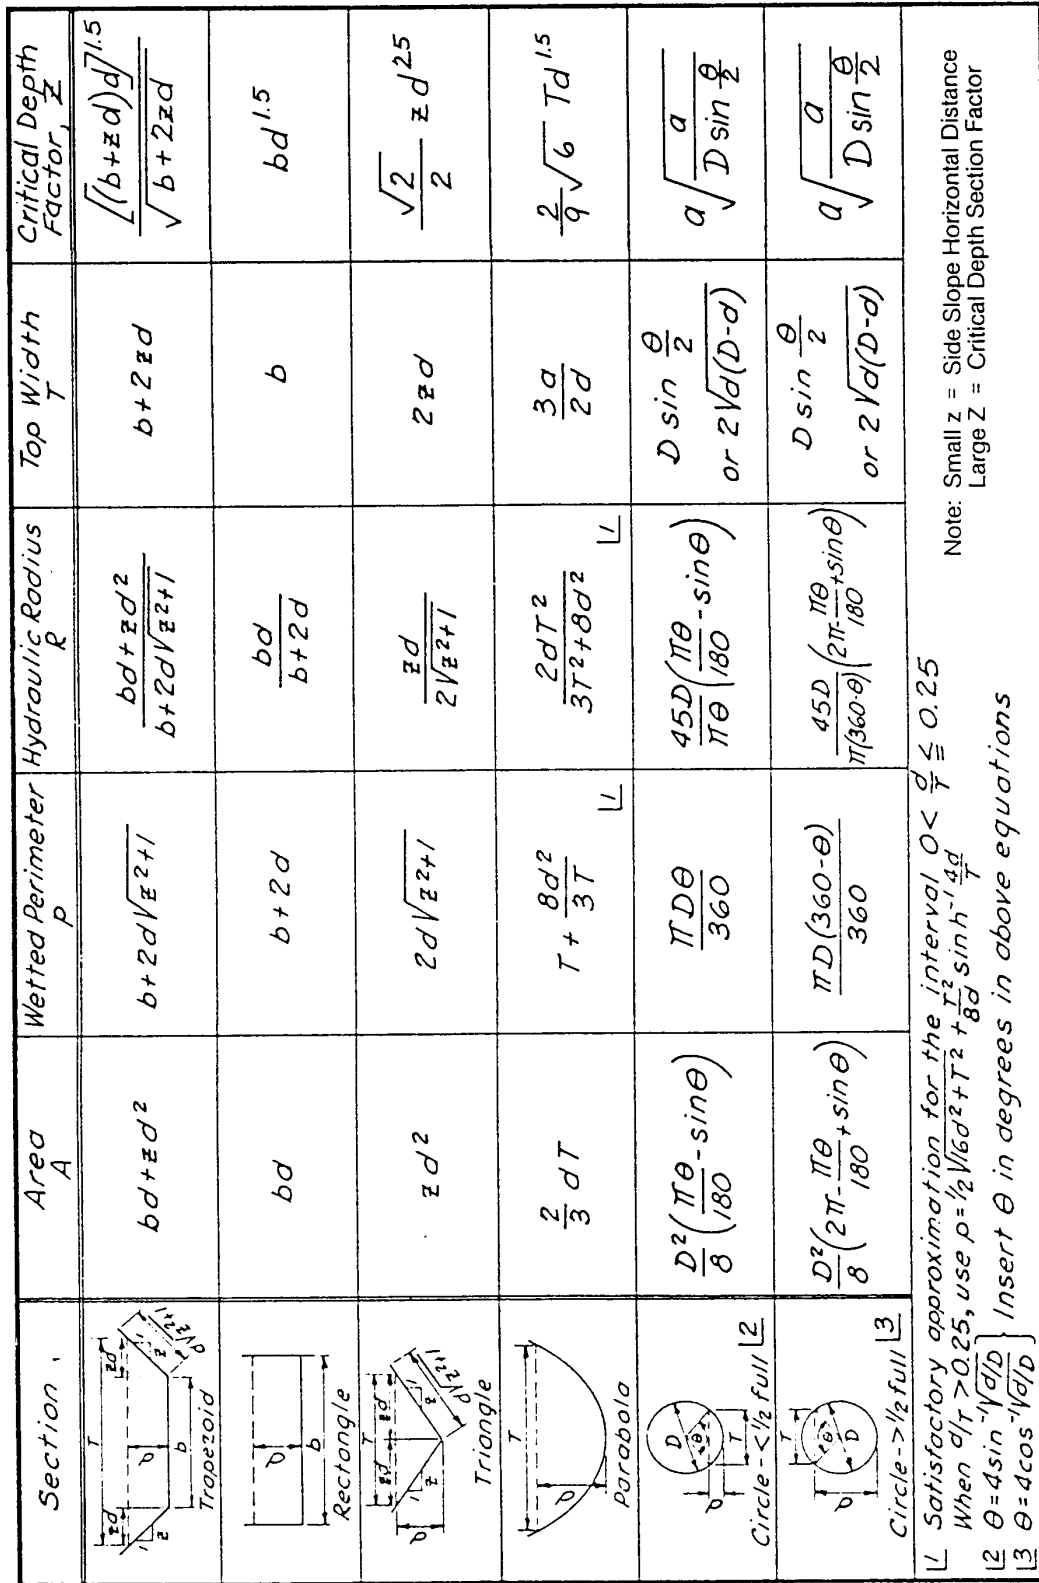 Section Area Wetted Perimeter Hydraulic Radius Top Width Critical Depth
A P R T Factor, Z
T
zd zd
1 z d b z 1 d√z²+1
Trapezoid
bd+zd² b+2d√z²+1 (bd+zd²)/(b+2d√z²+1) b+2zd [(b+zd)d]^1.5/√b+2zd
d b
Rectangle
bd b+2d bd/(b+2d) b bd^1.5
T
zd zd
d 1 z 1 z d√z²+1
Triangle
zd² 2d√z²+1 zd/(2√z²+1) 2zd (√2/2) zd^2.5
T
d
Parabola
2/3 dT T + 8d²/3T ⌊1 2dT²/(3T²+8d²) ⌊1 3a/2d 2/9 √6 Td^1.5
D θ d T
Circle-<1/2 full ⌊2
D²/8 (πθ/180 - sinθ) πDθ/360 45D/πθ (πθ/180 - sinθ) D sin θ/2 a√(a/(D sin θ/2))
or 2√d(D-d)
T θ D d
Circle->1/2 full ⌊3
D²/8 (2π - πθ/180 + sinθ) πD(360-θ)/360 45D/π(360-θ) (2π - πθ/180 + sinθ) D sin θ/2 a√(a/(D sin θ/2))
or 2√d(D-d)
⌊1 Satisfactory approximation for the interval 0< d/T ≦ 0.25
When d/T >0.25, use p=1/2√16d²+T² + T²/8d sinh⁻¹ 4d/T
⌊2 θ=4sin⁻¹√d/D
⌊3 θ=4cos⁻¹√d/D } Insert θ in degrees in above equations
Note: Small z = Side Slope Horizontal Distance
Large Z = Critical Depth Section Factor